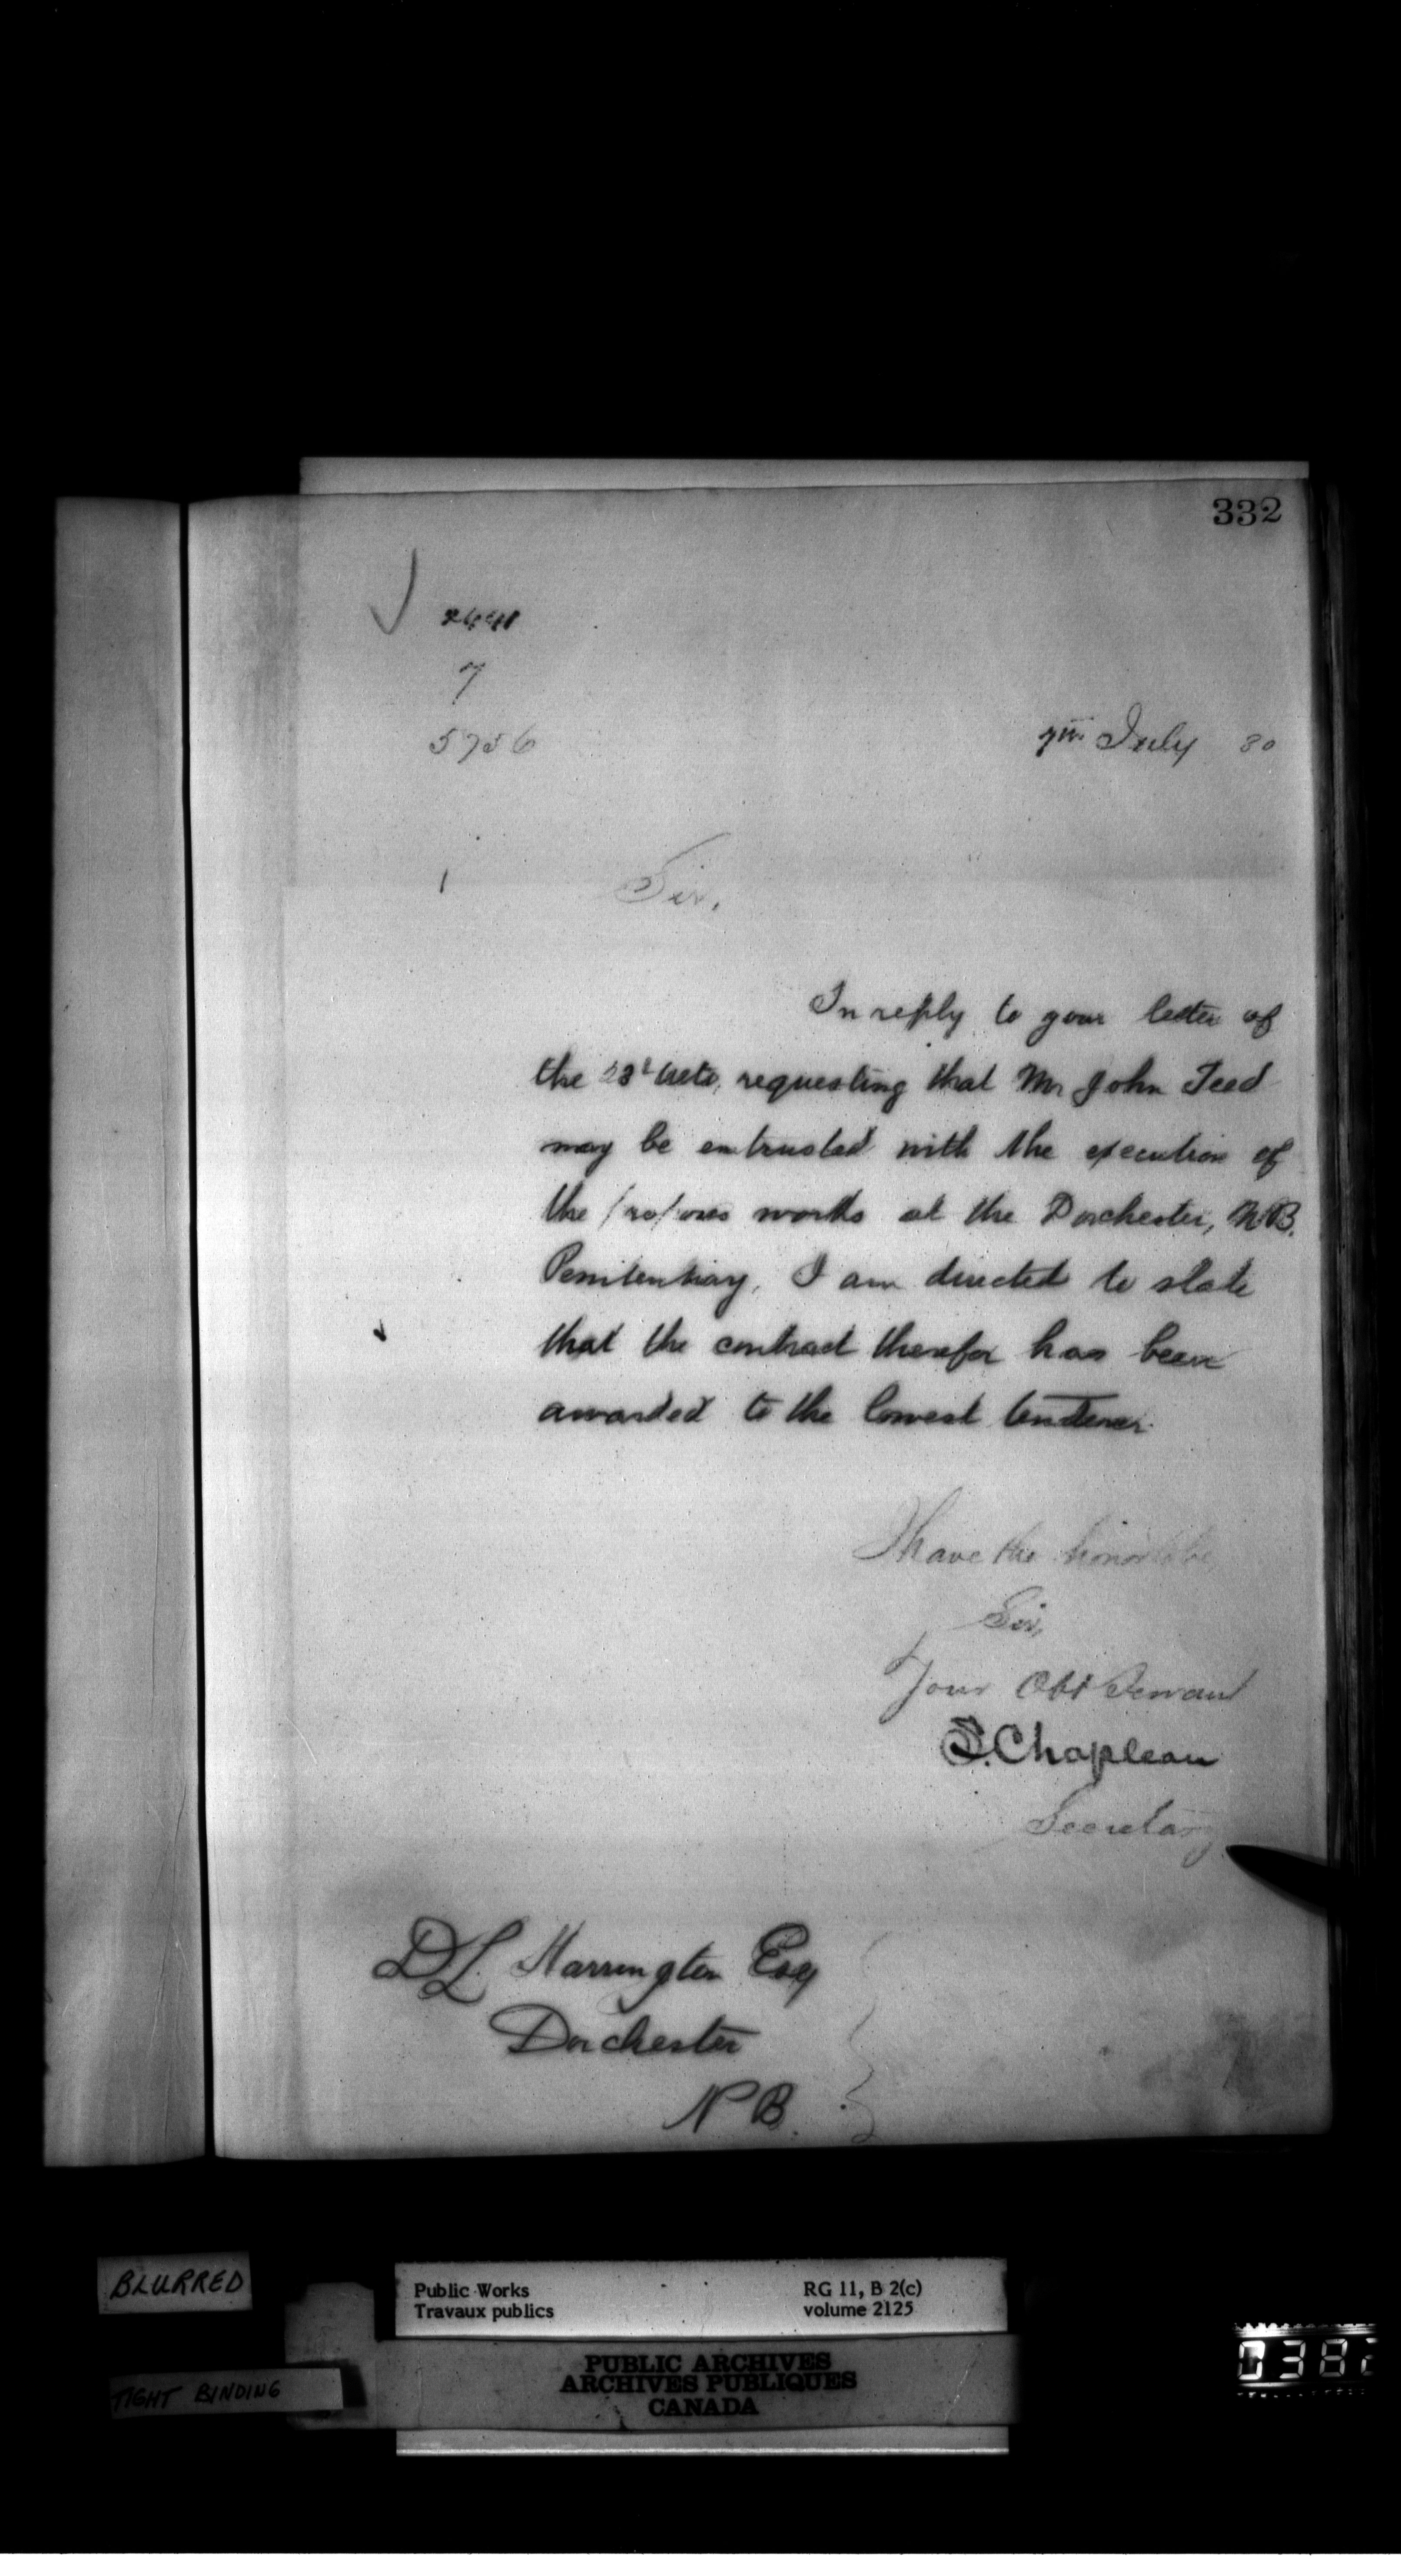 332
7
5756
7th July 80
Sir,
In reply to your letter of
the 23d Ulto, requesting that Mr John Teed
may be entrusted with the execution of
the proposed works at the Dorchester, N.B.
Penitentiary, I am directed to state
that the contract therefor has been
awarded to the lowest tenderer.
I have the honor to be,
Sir,
Your Obt Servant
S. Chapleau
Secretary
D L Harrington Esq
Dorchester
N B.
BLURRED
Public Works RG 11, B 2(c)
Travaux publics volume 2125
PUBLIC ARCHIVES
ARCHIVES PUBLIQUES
CANADA
TIGHT BINDING
0382